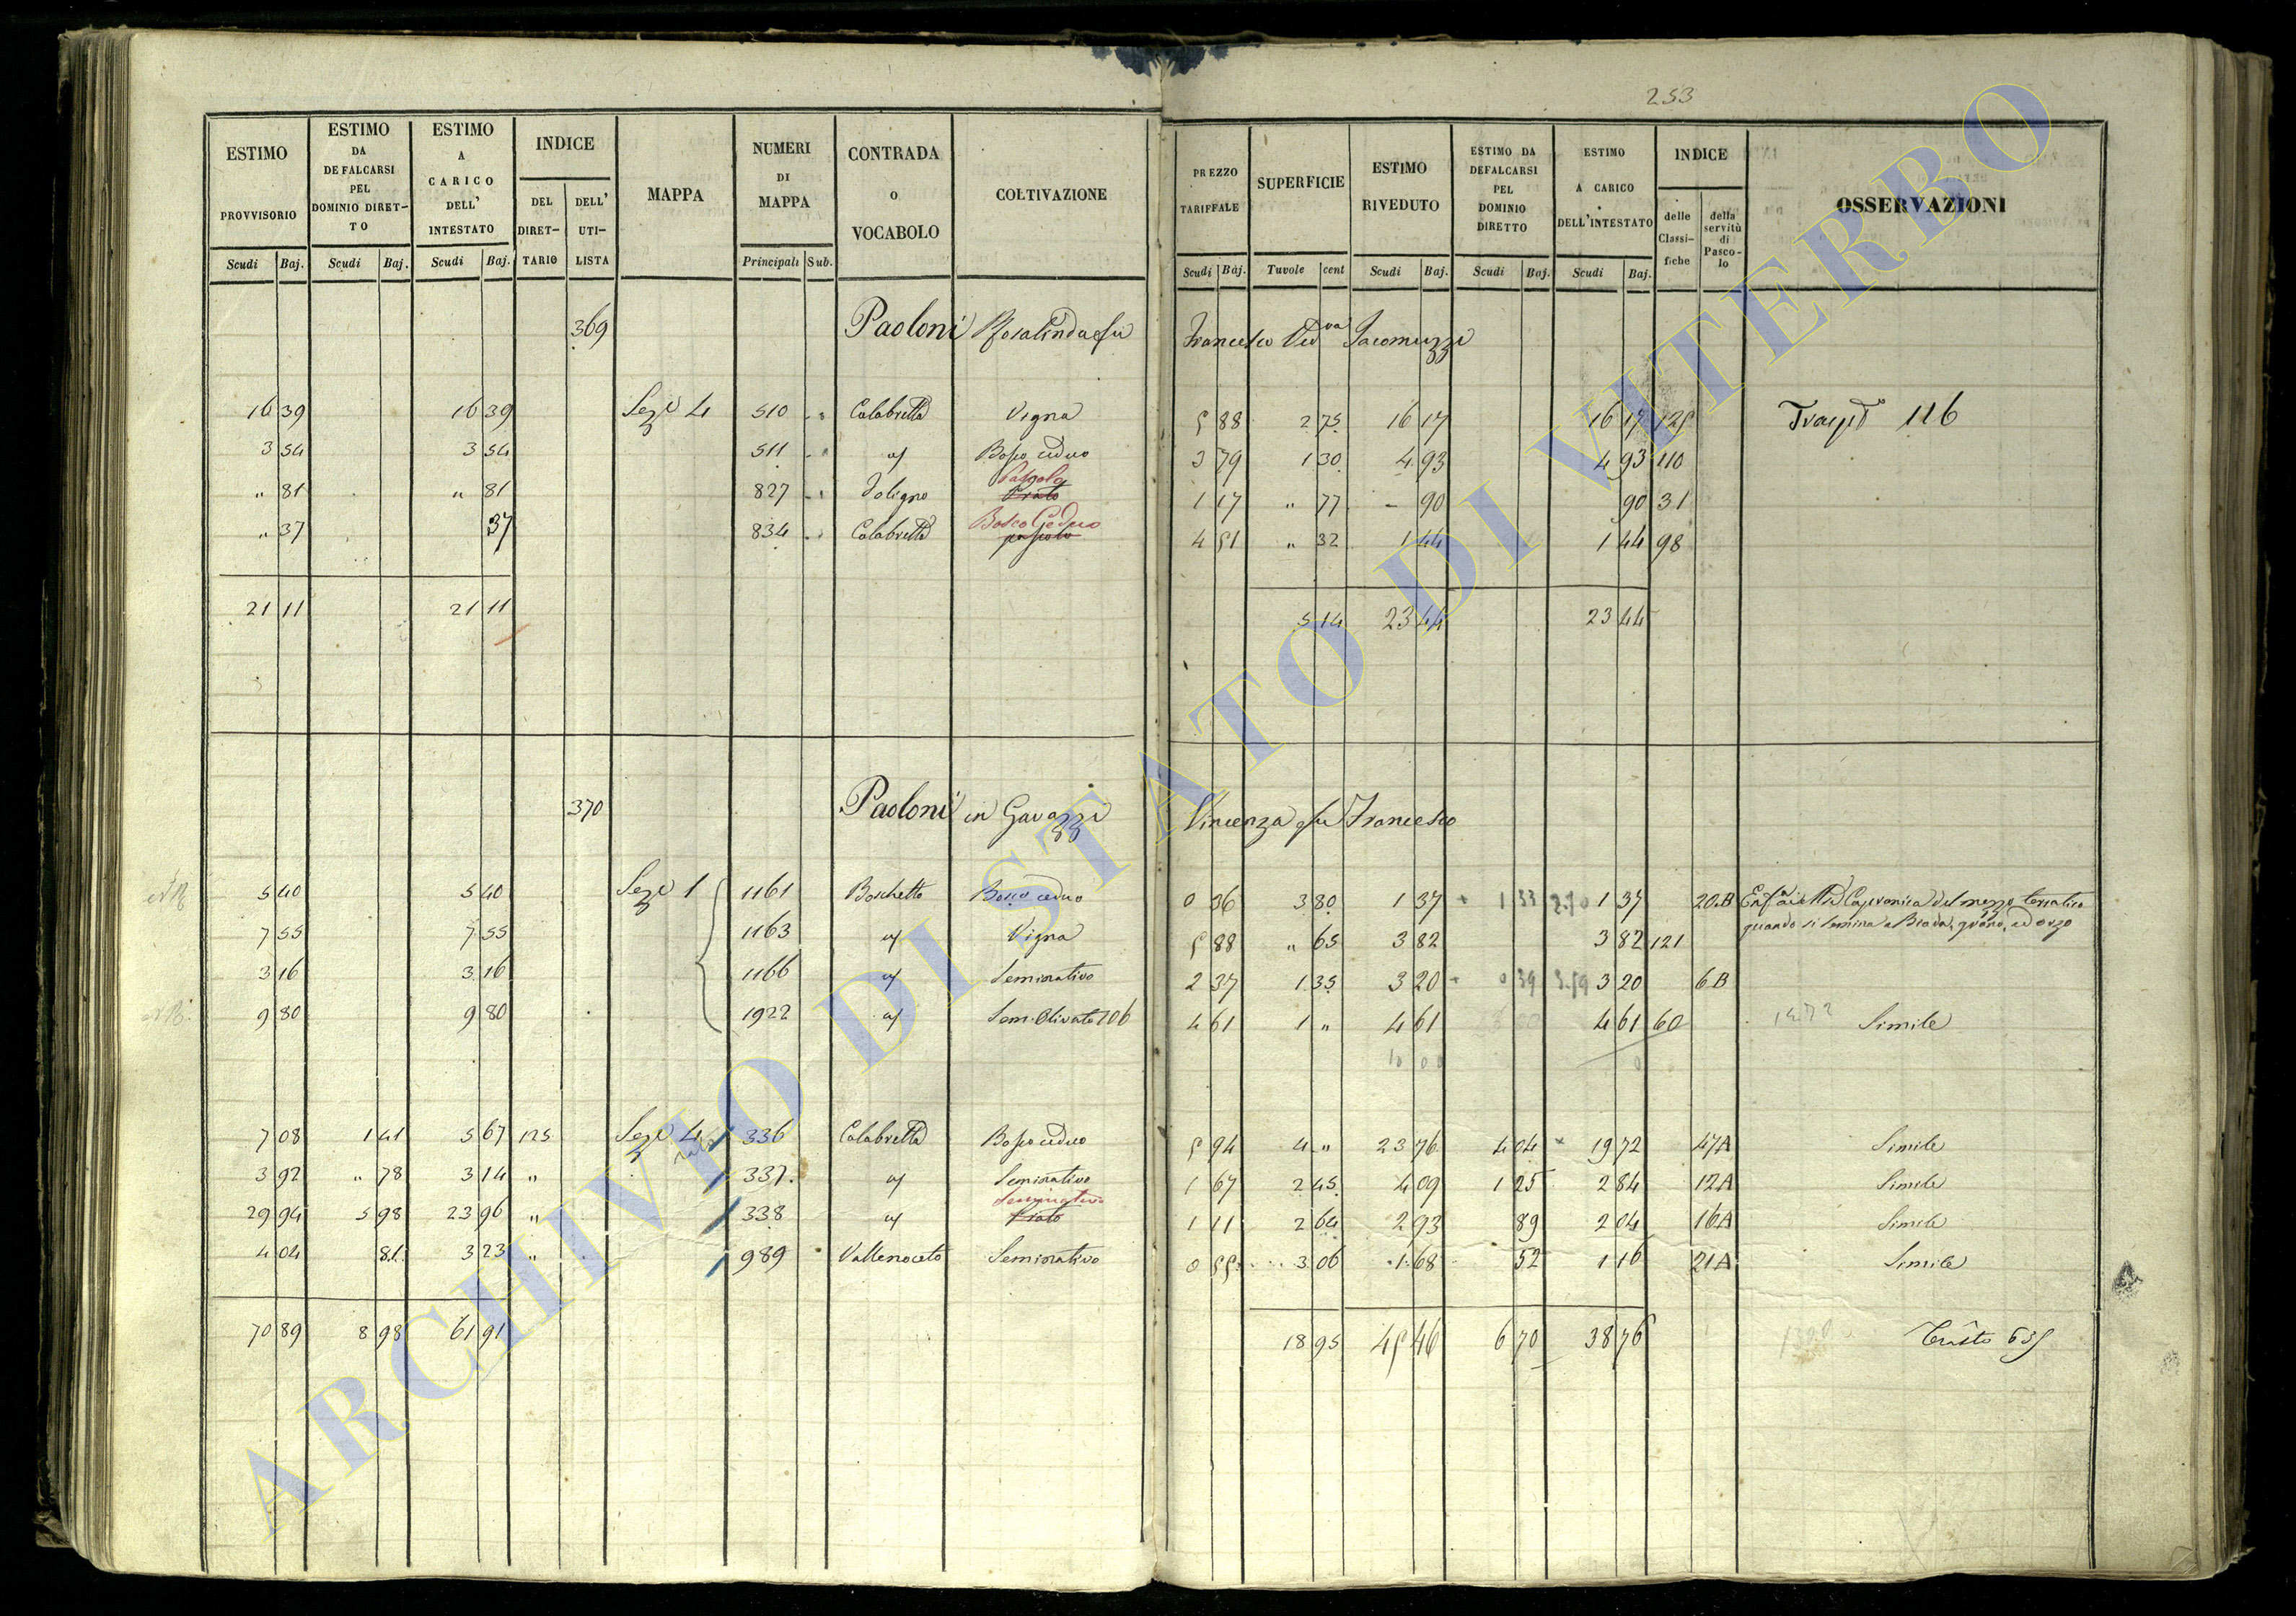 253
ESTIMO PROVVISORIO Scudi Baj. | ESTIMO DA DEFALCARSI PEL DOMINIO DIRETTO Scudi Baj. | ESTIMO A CARICO DELL' INTESTATO Scudi Baj. | INDICE DEL DIRETTARIO DELL' UTILISTA | MAPPA | NUMERI DI MAPPA Principali Sub. | CONTRADA o VOCABOLO | COLTIVAZIONE | PREZZO TARIFFALE Scudi Baj. | SUPERFICIE Tavole cent | ESTIMO RIVEDUTO Scudi Baj. | ESTIMO DA DEFALCARSI PEL DOMINIO DIRETTO Scudi Baj. | ESTIMO A CARICO DELL'INTESTATO Scudi Baj. | INDICE delle Classifiche della servitù di Pascolo | OSSERVAZIONI
369 Paoloni Rosalinda fu Francesco Ved va Jacomuzzi
16 39 | 16 39 | Seze 4 | 510 | Calabretta | Vigna | 5 88 | 2 75 | 16 17 | 16 17 | 125 | 116
3 54 | 3 54 | 511 | Bosco ceduo | 3 79 | 1 30 | 4 93 | 4 93 | 110
" 81 | " 81 | 827 | Foligno | Prato Pascolo | 1 17 | " 77 | - 90 | 90 | 31
" 37 | 37 | 834 | Calabretta | pascolo Bosco Ceduo | 4 51 | " 32 | 1 44 | 1 44 | 98
21 11 | 21 11 | 5 14 | 23 44 | 23 44
370 Paoloni in Gavazzi Vincenza fu Francesco
5 40 | 5 40 | Seze 1 | 1161 | Boschetto | Bosco ceduo | 0 36 | 3 80 | 1 37 | + 1 33 | 1 37 | 20.B | di Capranica del mezzo terratico
quando si semina a Biada, grano, ed orzo
7 55 | 7 55 | 1163 | Vigna | 5 88 | " 65 | 3 82 | 3 82 | 121
3 16 | 3 16 | 1166 | Seminativo | 2 37 | 1 35 | 3 20 | + 0 39 | 3 20 | 6 B
9 80 | 9 80 | 1922 | Sem. Olivato 106 | 4 61 | 1 " | 4 61 | 4 61 | 60 | Simile
10 00
7 08 | 1 41 | 5 67 | 125 | Seze 4 | 336 | Calabretta | Bosco ceduo | 5 94 | 4 " | 23 76 | 4 04 | 19 72 | 47A | Simile
3 92 | " 78 | 3 14 | " | 337 | Seminativo | 1 67 | 2 45 | 4 09 | 1 25 | 2 84 | 12A | Simile
29 94 | 5 98 | 23 96 | " | 338 | Prato Seminativo | 1 11 | 2 64 | 2 93 | 89 | 2 04 | 16A | Simile
4 04 | 81 | 3 23 | " | 989 | Vallenoceto | Seminativo | 0 55 | 3 06 | 1 68 | 52 | 1 16 | 21A | Simile
70 89 | 8 98 | 61 91 | 18 95 | 45 46 | 6 70 | 38 76 | 635
ARCHIVIO DI STATO DI VITERBO